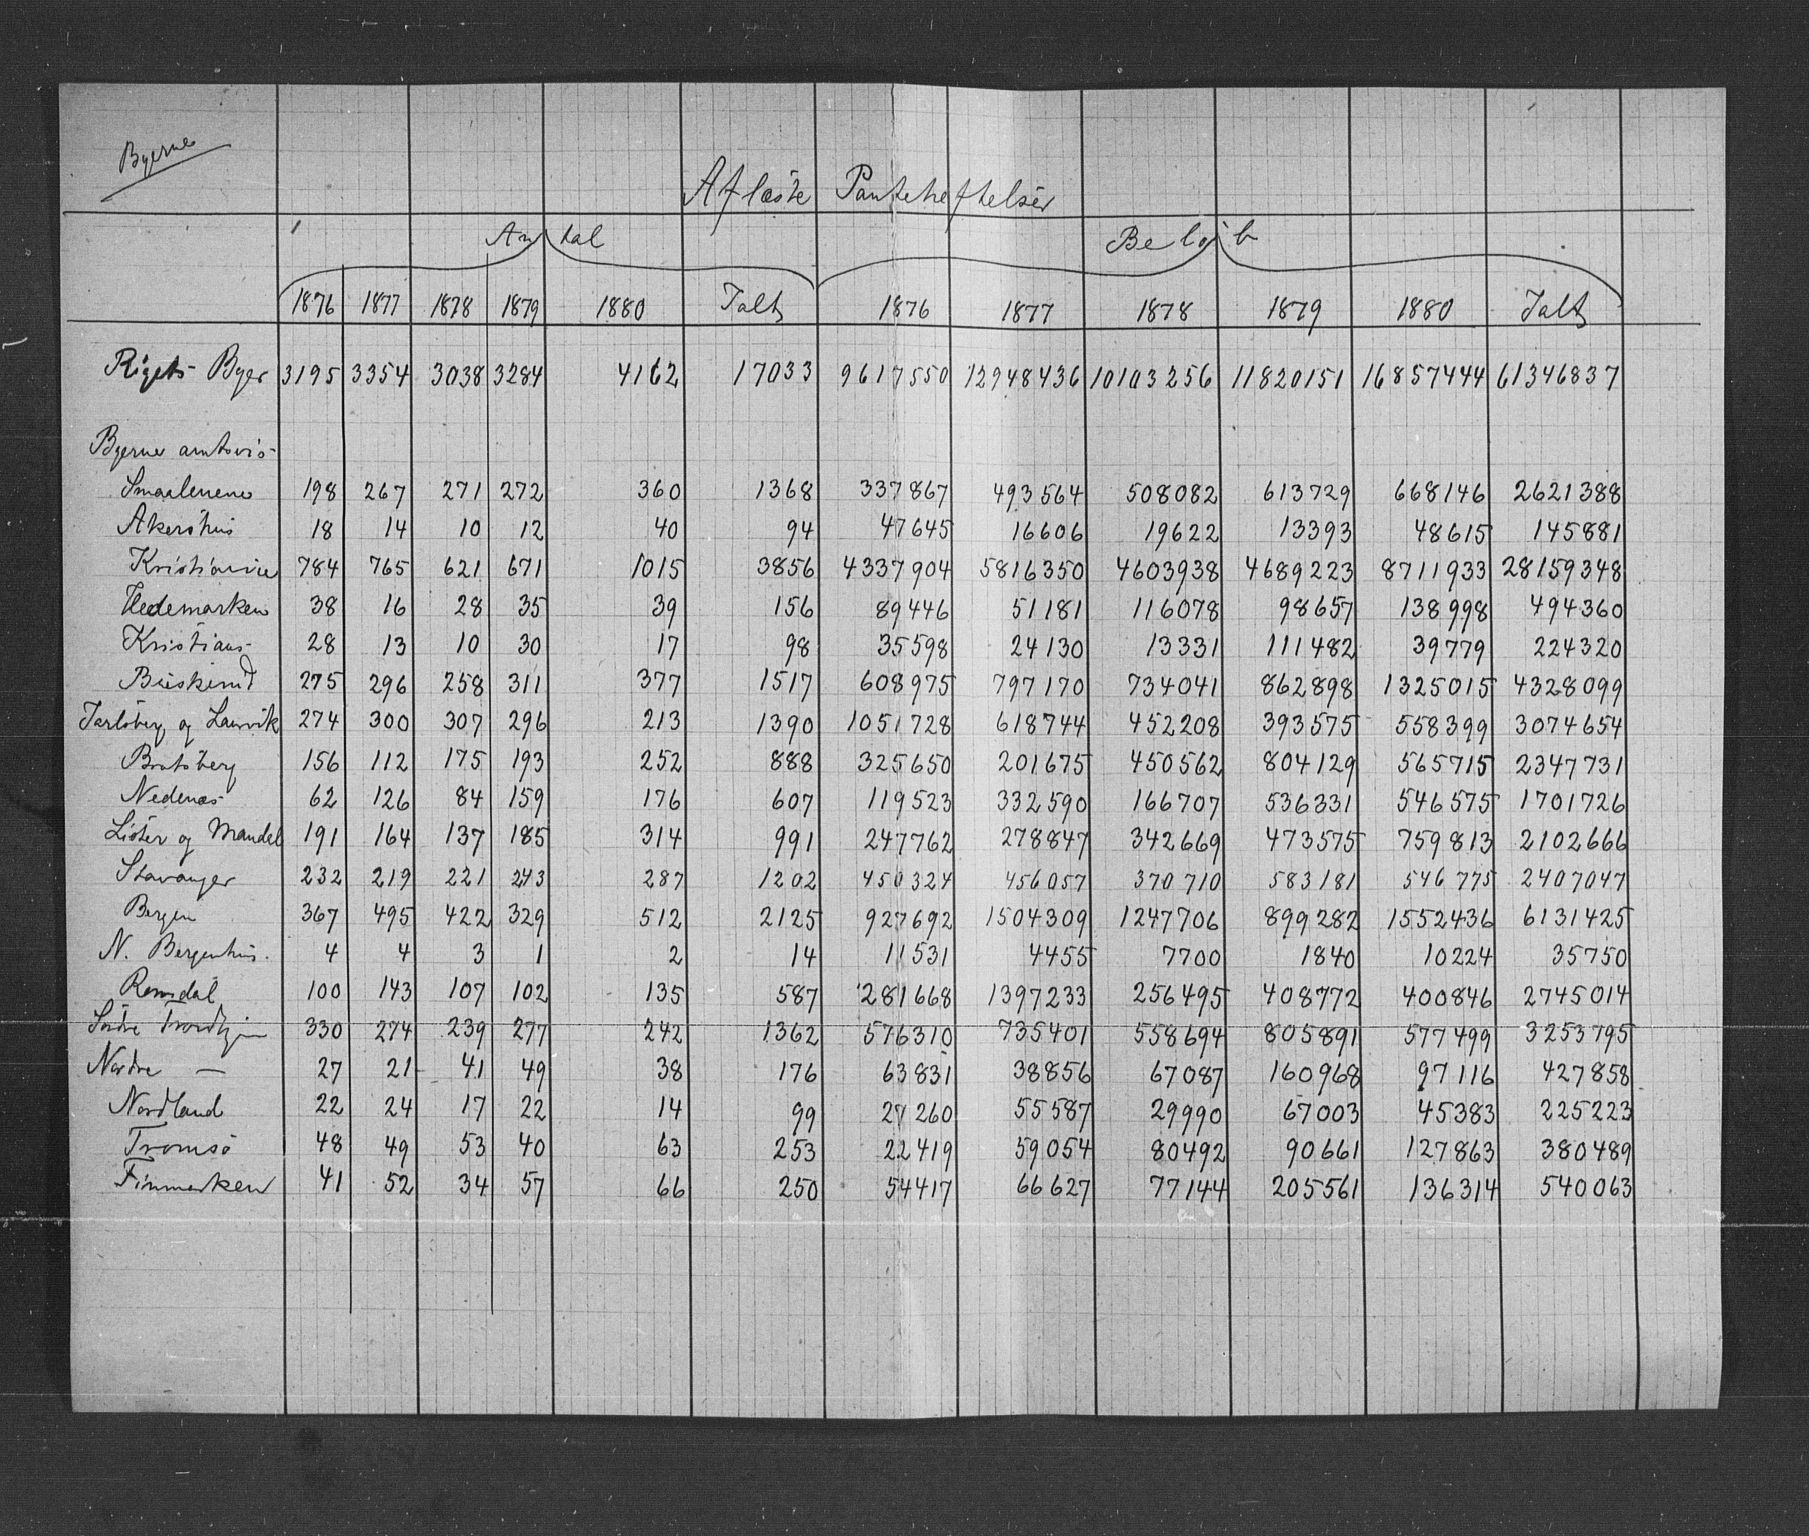 Byerne
Aflæste Panteheftelser
Antal Beløb
1876 1877 1878 1879 1880 Ialt 1876 1877 1878 1879 1880 Ialt
Rigets Byer 3195 3354 3038 3284 4162 17033 9617550 12948436 10103256 11820151 16857444 61346837
Byerne amtsvis
Smaalenene 198 267 271 272 360 1368 337867 493564 508082 613729 668146 2621388
Akershus 18 14 10 12 40 94 47645 16606 19622 13393 48615 145881
Kristiania 784 765 621 671 1015 3856 4337904 5816350 4603938 4689223 8711933 28159348
Hedemarken 38 16 28 35 39 156 89446 51181 116078 98657 138998 494360
Kristians 28 13 10 30 17 98 35598 24130 13331 111482 39779 224320
Buskerud 275 296 258 311 377 1517 608975 797170 734041 862898 1325015 4328099
Jarlsberg og Laurvik 274 300 307 296 213 1390 1051728 618744 452208 393575 558399 3074654
Bratsberg 156 112 175 193 252 888 325650 201675 450562 804129 565715 2347731
Nedenæs 62 126 84 159 176 607 119523 332590 166707 536331 546575 1701726
Lister og Mandal 191 164 137 185 314 991 247762 278847 342669 473575 759813 2102666
Stavanger 232 219 221 243 287 1202 450324 456057 370710 583181 546775 2407047
Bergen 367 495 422 329 512 2125 927692 1504309 1247706 899282 1552436 6131425
N. Bergenhus. 4 4 3 1 2 14 11531 4455 7700 1840 10224 35750
Romsdal 100 143 107 102 135 587 281668 1397233 256495 408772 400846 2745014
Søndre Trondhjem 330 274 239 277 242 1362 576310 735401 558694 805891 577499 3253795
Nordre — 27 21 41 49 38 176 63831 38856 67087 160968 97116 427858
Nordland 22 24 17 22 14 99 27260 55587 29990 67003 45383 225223
Tromsø 48 49 53 40 63 253 22419 59054 80492 90661 127863 380489
Finmarken 41 52 34 57 66 250 54417 66627 77144 205561 136314 540063